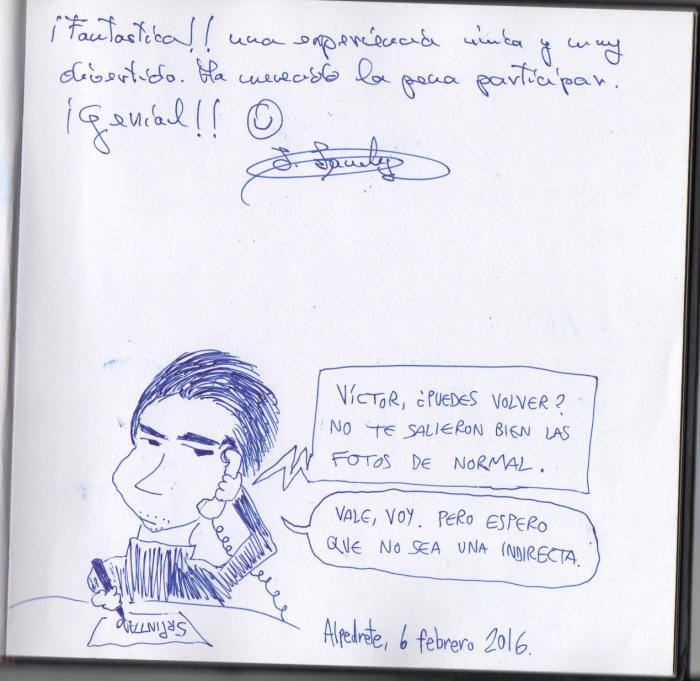 ¡Fantastica!! una experiencia unica y muy
divertida. Ha merecido la pena participar.
¡Genial!!
VÍCTOR, ¿PUEDES VOLVER?
NO TE SALIERON BIEN LAS
FOTOS DE NORMAL.
VALE, VOY. PERO ESPERO
QUE NO SEA UNA INDIRECTA.
Alpedrete, 6 febrero 2016.